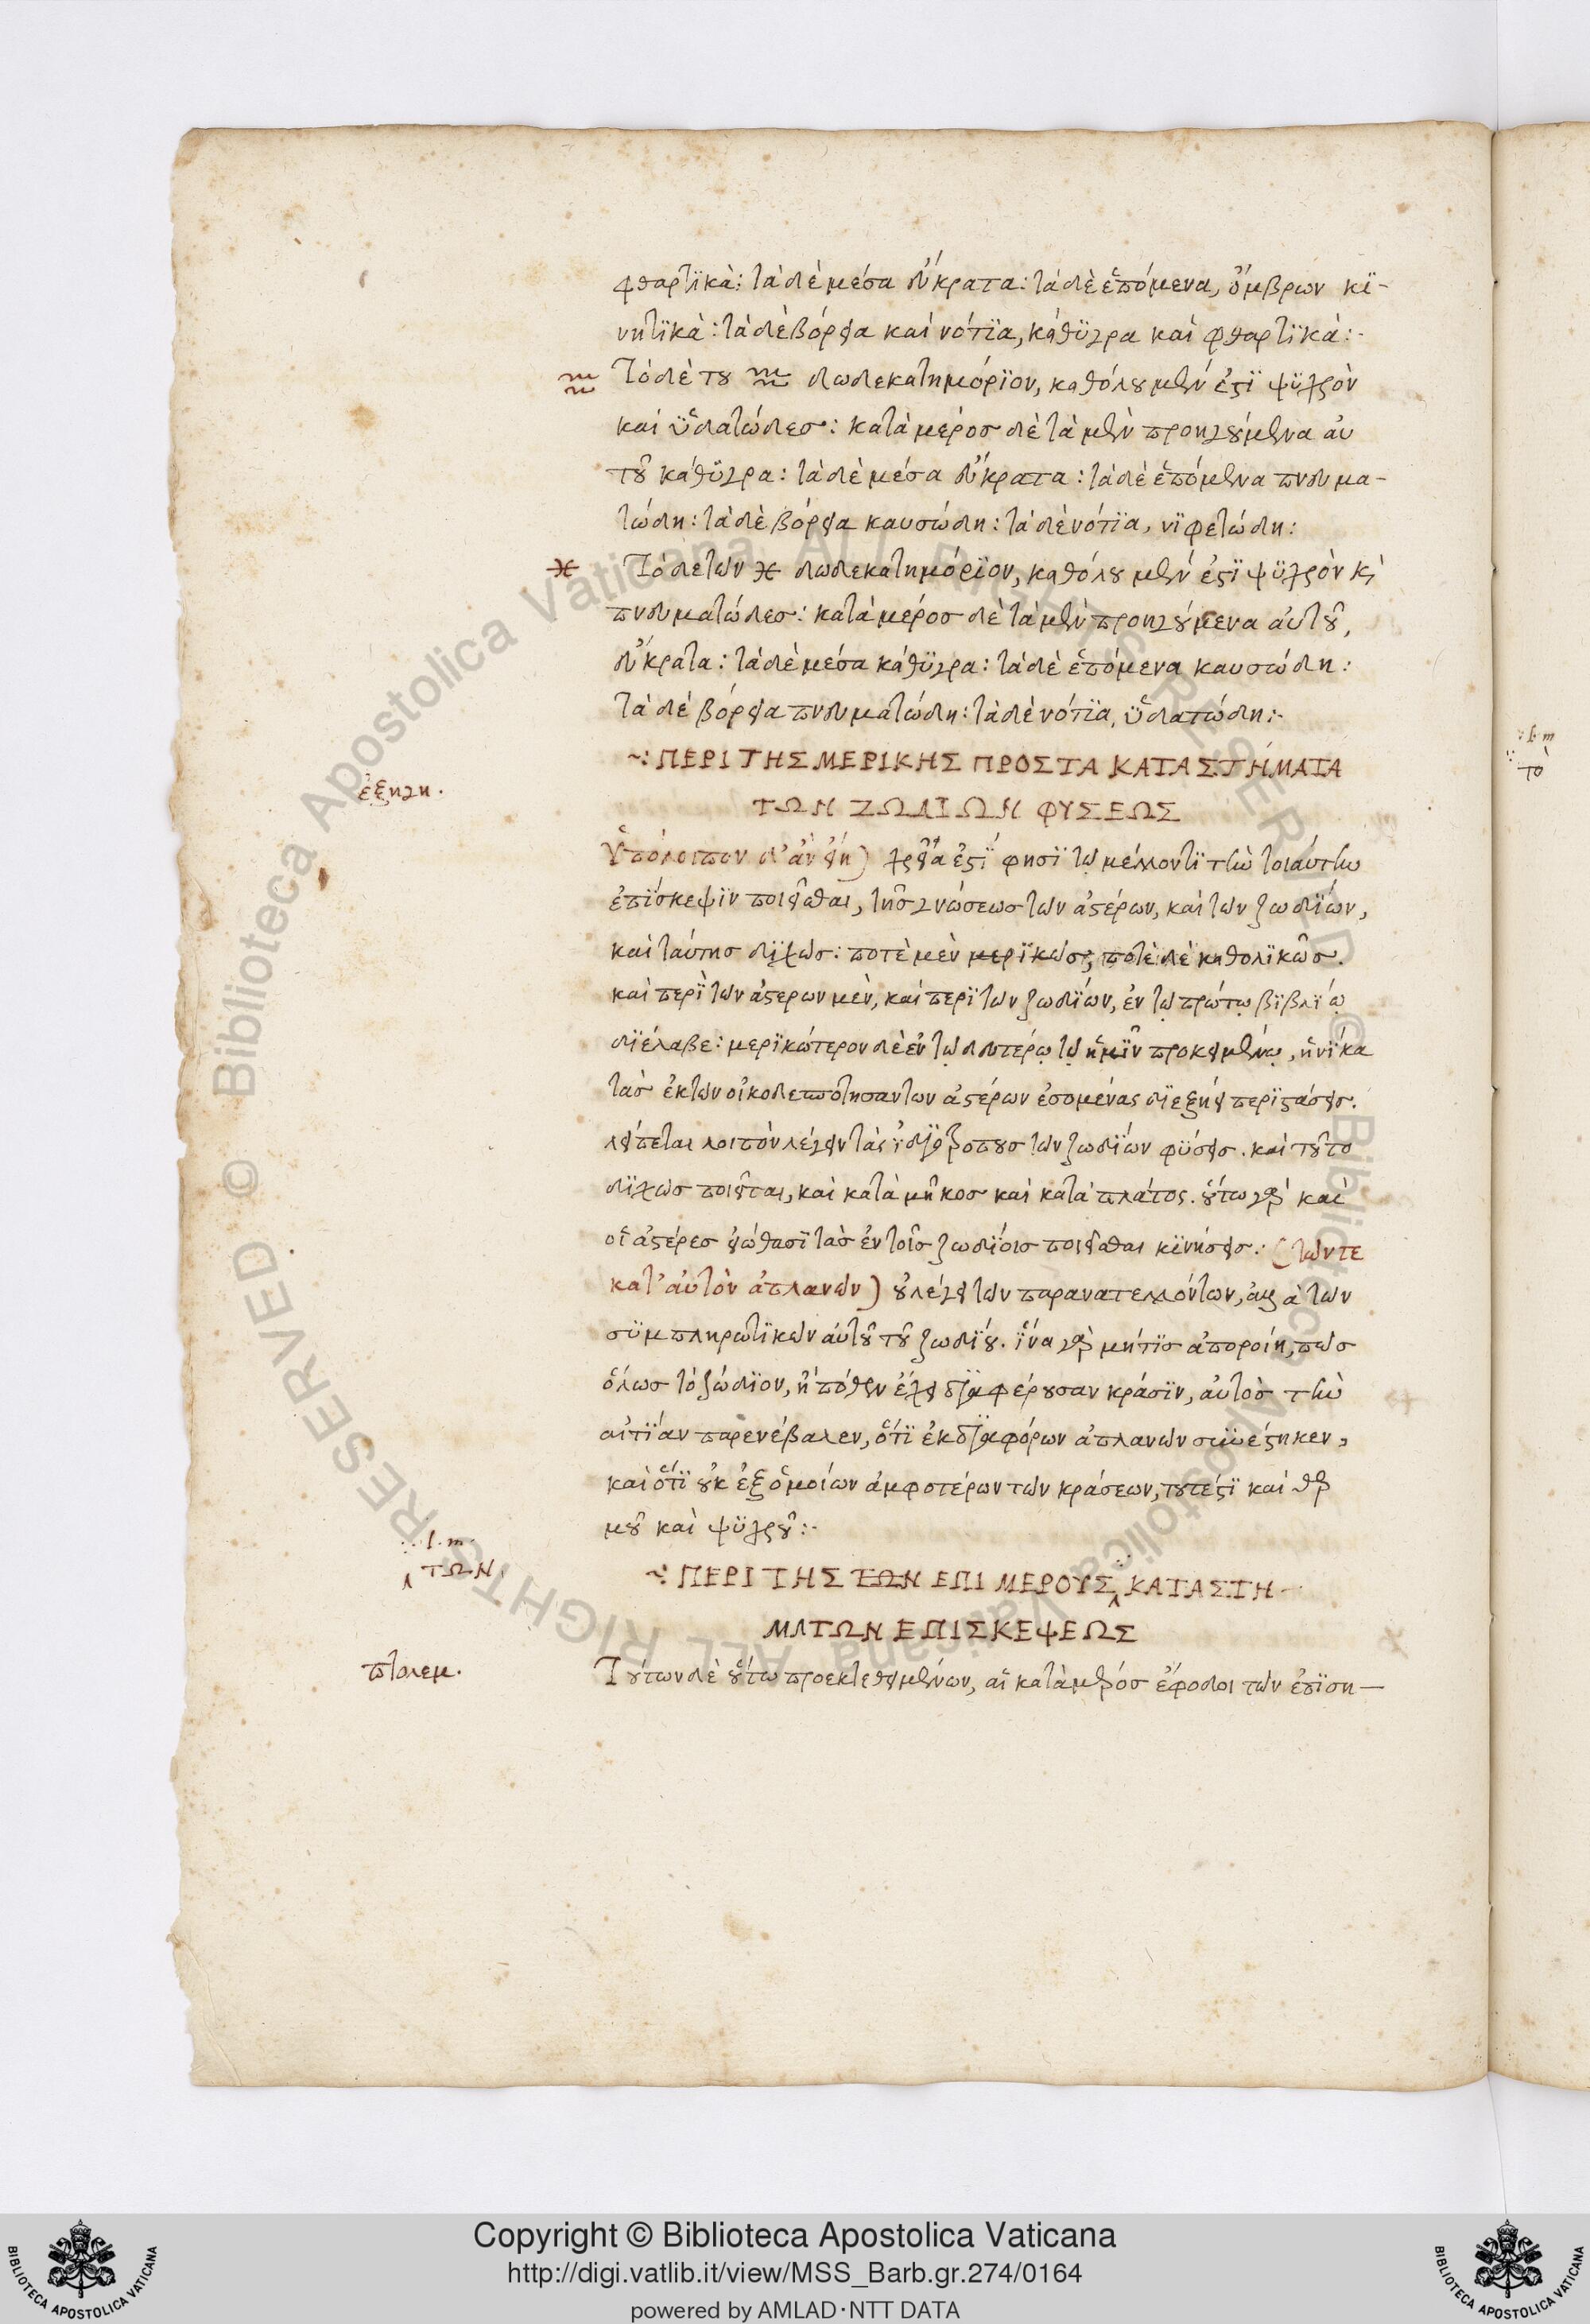 φθαρτικὰ: τὰ δὲ μέσα εὔκρατα: τὰ δὲ ἑπόμενα, ὄμβρων κϊ-
νητϊκὰ: τὰ δὲ βόρεια καὶ νότϊα, κάθϋγρα καὶ φθαρτϊκὰ:-
♒ Τὸ δὲ τοῦ ♒ δωδεκατημόρϊον, καθόλου μὲν ἐστϊ ψϋχρὸν
καὶ ϋδατώδεσ: κατὰ μέροσ δὲ τὰ μὲν προηγούμενα αὐ
τοῦ κάθϋγρα: τὰ δὲ μέσα εὔκρατα: τὰ δὲ ἑπόμενα πνευμα-
τώδη: τὰ δὲ βόρεια καυσώδη: τὰ δὲ νότϊα, νϊφετώδη:
♓ Τὸ δὲ τῶν ♓ δωδεκατημόρϊον, καθόλου μὲν ἐστϊ ψϋχρὸν κὶ
πνευματώδεσ: κατὰ μέροσ δὲ τὰ μὲν προηγούμενα αὐτοῦ,
εὔκρατα: τὰ δὲ μέσα κάθϋγρα: τὰ δὲ ἑπόμενα καυσώδη:
τὰ δὲ βόρεια πνευματώδη: τὰ δὲ νότϊα, ϋδατώδη:-
~: ΠΕΡΙ ΤΗΣ ΜΕΡΙΚΗΣ ΠΡΟΣ ΤΑ ΚΑΤΑΣΤΗΜΑΤΑ
ΤΩΝ ΖΩΔΙΩΝ ΦΥΣΕΩΣ
ἐξηγη.
Ὑπόλοιπον δ' ἂν εἴη) χρεία ἐστϊ φησϊ τῷ μέλλοντϊ τὴν τοιαύτην
ἐπϊσκεψϊν ποιεῖσθαι, τῆσ γνώσεωσ τῶν ἀστέρων, καὶ τῶν ζωδϊων,
καὶ ταύτησ δϊχῶσ: ποτὲ μὲν μερϊκῶσ, ποτὲ δὲ καθολϊκῶσ.
καὶ περὶ τῶν ἀστερων μὲν, καὶ περὶ τῶν ζωδϊων, ἐν τῷ πρώτῳ βϊβλϊῳ
δϊέλαβε: μερϊκώτερον δὲ ἐν τῷ δευτέρῳ τῷ ἡμῖν προκειμένῳ, ἡνϊκα
τὰσ ἐκ τῶν οἰκοδεσποτησαντων ἀστέρων ἐσομένας δϊεξήει περϊστάσεισ.
λείπεται λοιπὸν λέγειν τὰς ἰδϊοτρόπουσ τῶν ζωδϊων φύσεισ. καὶ τοῦτο
δϊχῶσ ποιεῖται, καὶ κατὰ μῆκοσ καὶ κατὰ πλάτος. οὕτω γὰρ καὶ
οἱ ἀστέρεσ εἰώθασϊ τὰσ ἐν τοῖσ ζωδϊοισ ποιεῖσθαι κϊνήσεισ: (τῶν τε
κατ' αὐτὸν ἀπλανῶν) οὐ λέγει τῶν παρανατελλόντων, ἀλλὰ τῶν
σϋμπληρωτϊκῶν αὐτοῦ τοῦ ζωδϊου. ἵνα γὰρ μήτϊσ ἀποροίη, πῶσ
ὅλωσ τὸ ζώδϊον, ἢ πόθεν ἔχει δϊαφέρουσαν κράσϊν, αὐτὸσ τὴν
αἰτϊαν παρενέβαλεν, ὅτϊ ἐκ δϊαφόρων ἀπλανῶν συνέστηκεν,
καὶ ὅτϊ οὐκ ἐξ ὁμοίων ἀμφοτέρων τῶν κράσεων, τουτέστϊ καὶ θερ
μοῦ καὶ ψϋχροῦ:-
∴ l. m.
ΤΩΝ
~: ΠΕΡΙ ΤΗΣ ΤΩΝ ΕΠΙ ΜΕΡΟΥΣ ΚΑΤΑΣΤΗ-
ΜΑΤΩΝ ΕΠΙΣΚΕΨΕΩΣ
πτολεμ.
Τούτων δὲ οὕτω προεκτεθειμένων, αἱ κατὰ μέροσ ἔφοδοι τῶν ἐπϊση-
∴ l. m
τὸ
Copyright © Biblioteca Apostolica Vaticana
http://digi.vatlib.it/view/MSS_Barb.gr.274/0164
powered by AMLAD·NTT DATA
BIBLIOTECA APOSTOLICA VATICANA
BIBLIOTECA APOSTOLICA VATICANA